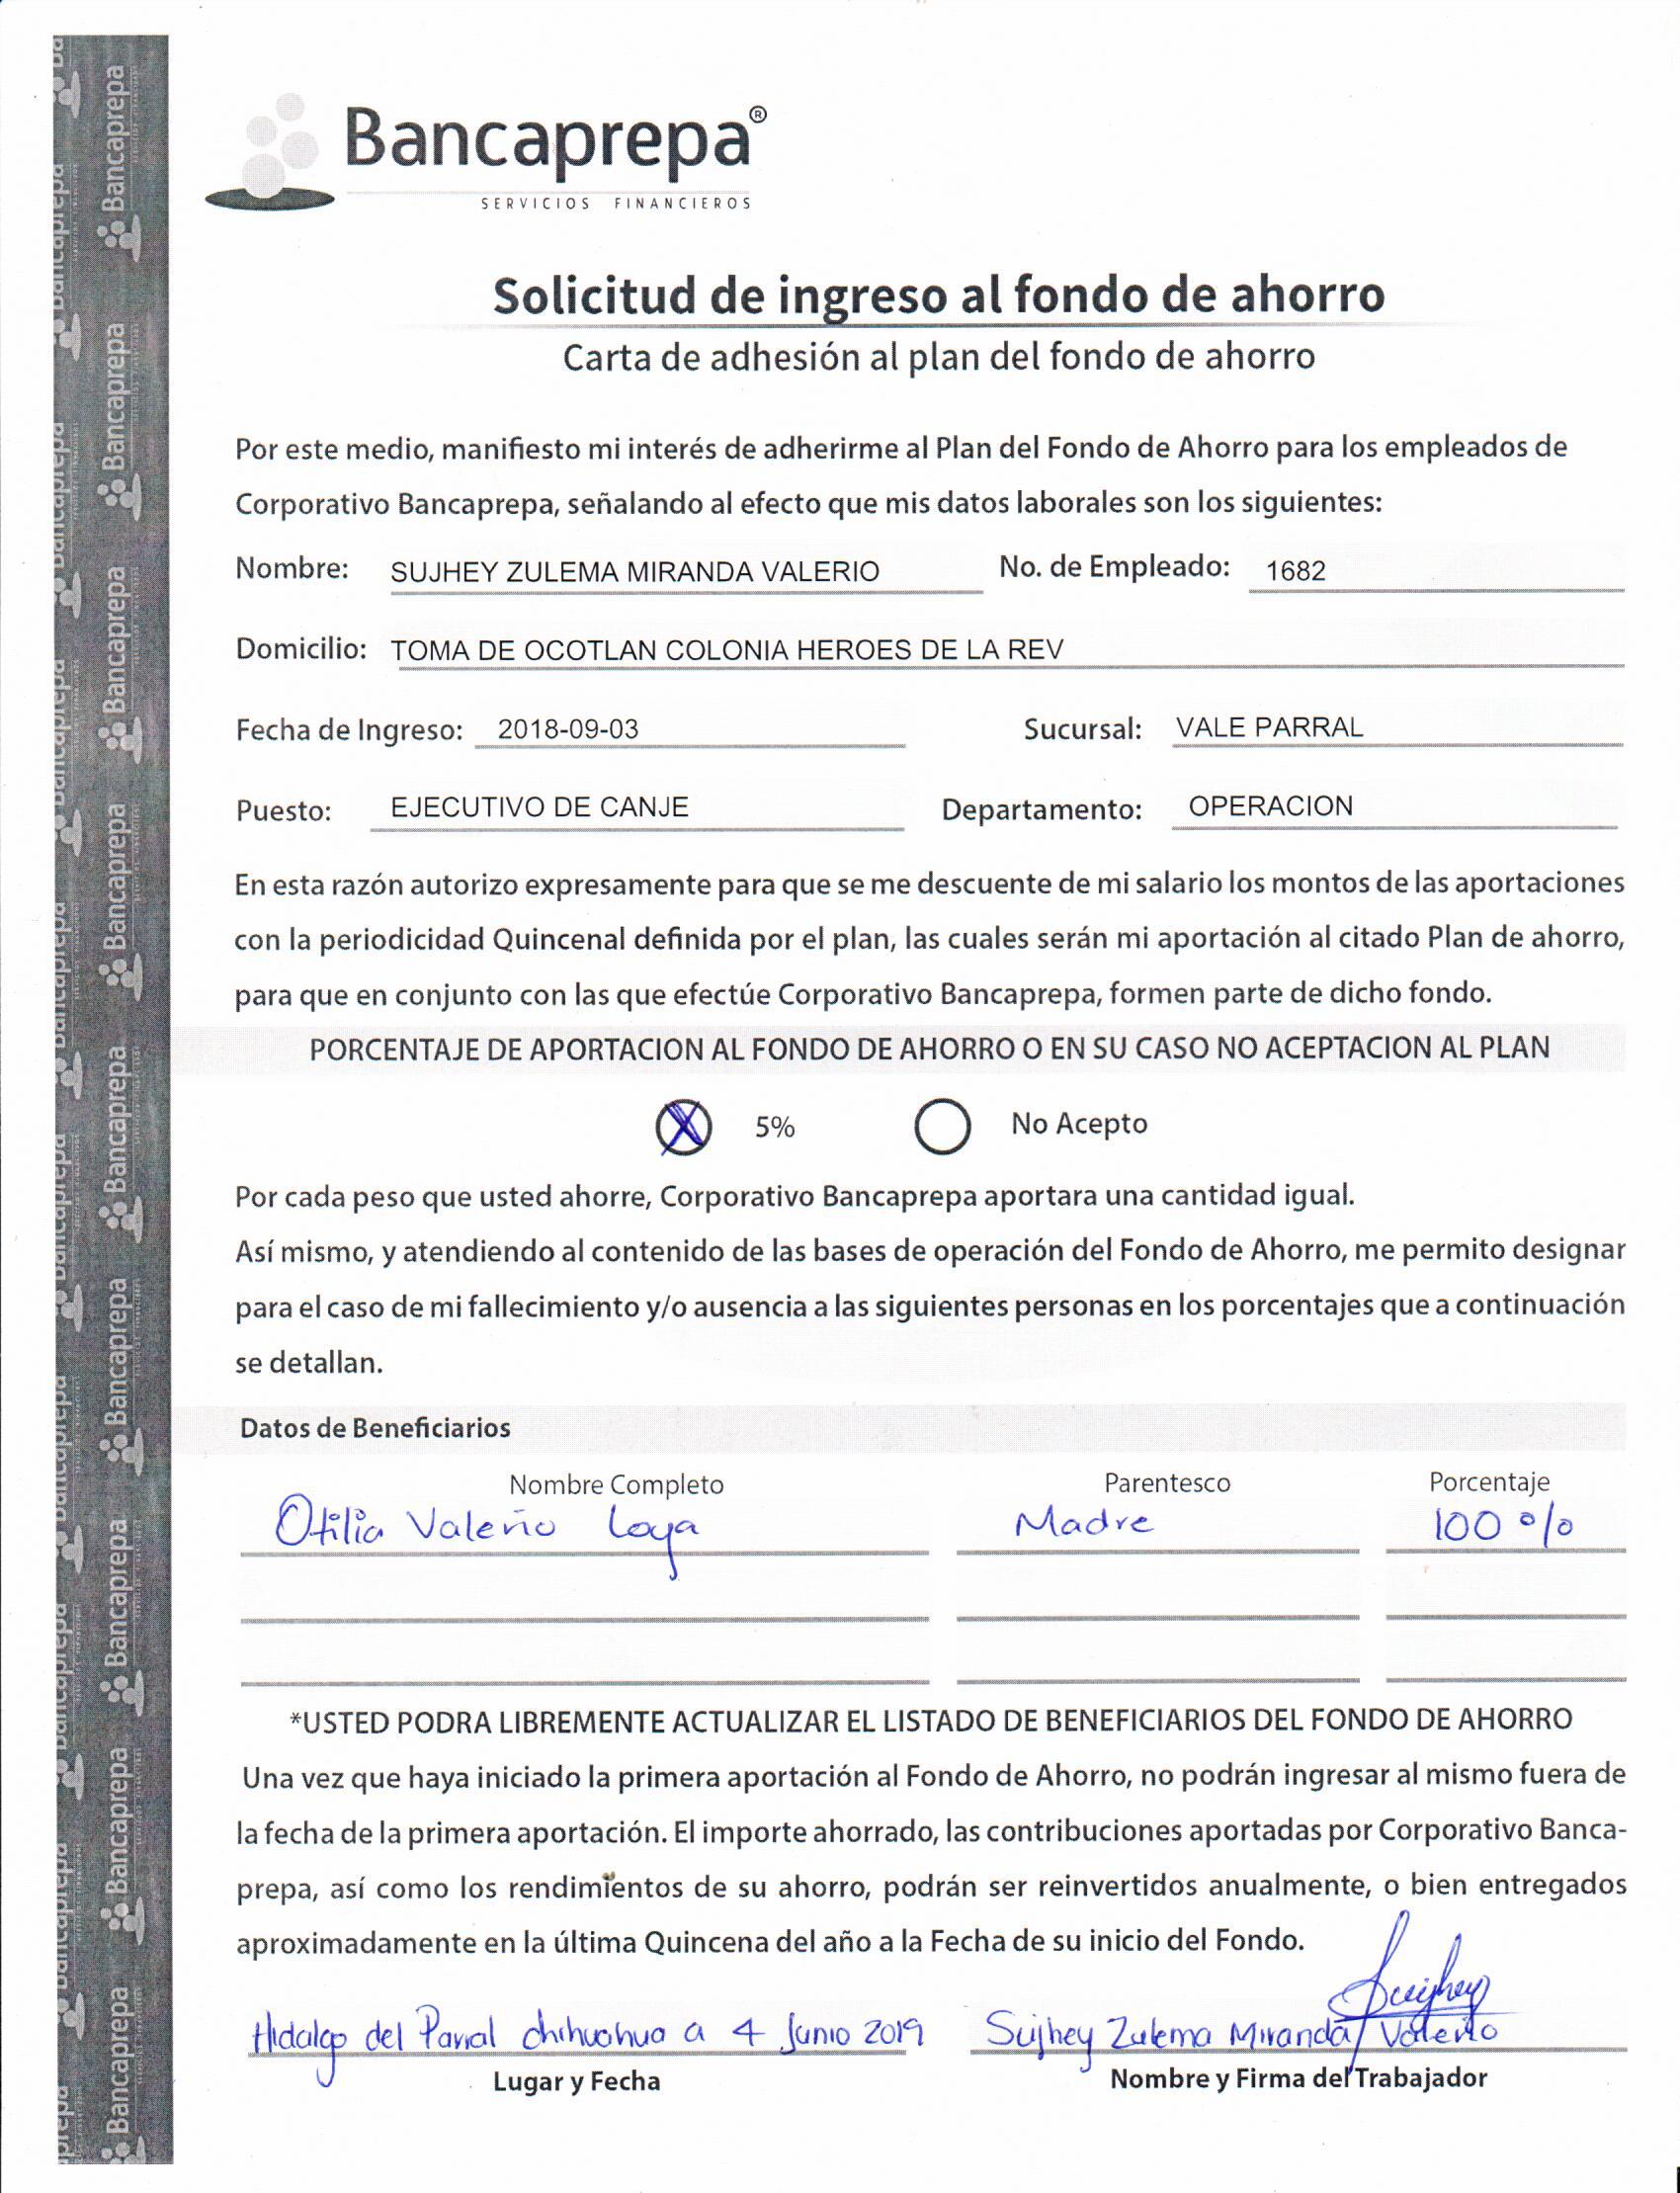 Bancaprepa®
SERVICIOS FINANCIEROS
Solicitud de ingreso al fondo de ahorro
Carta de adhesión al plan del fondo de ahorro
Por este medio, manifiesto mi interés de adherirme al Plan del Fondo de Ahorro para los empleados de
Corporativo Bancaprepa, señalando al efecto que mis datos laborales son los siguientes:
Nombre: SUJHEY ZULEMA MIRANDA VALERIO No. de Empleado: 1682
Domicilio: TOMA DE OCOTLAN COLONIA HEROES DE LA REV
Fecha de Ingreso: 2018-09-03 Sucursal: VALE PARRAL
Puesto: EJECUTIVO DE CANJE Departamento: OPERACION
En esta razón autorizo expresamente para que se me descuente de mi salario los montos de las aportaciones
con la periodicidad Quincenal definida por el plan, las cuales serán mi aportación al citado Plan de ahorro,
para que en conjunto con las que efectúe Corporativo Bancaprepa, formen parte de dicho fondo.
PORCENTAJE DE APORTACION AL FONDO DE AHORRO O EN SU CASO NO ACEPTACION AL PLAN
X 5% No Acepto
Por cada peso que usted ahorre, Corporativo Bancaprepa aportara una cantidad igual.
Así mismo, y atendiendo al contenido de las bases de operación del Fondo de Ahorro, me permito designar
para el caso de mi fallecimiento y/o ausencia a las siguientes personas en los porcentajes que a continuación
se detallan.
Datos de Beneficiarios
Nombre Completo Parentesco Porcentaje
Otilia Valerio Loya Madre 100 %
*USTED PODRA LIBREMENTE ACTUALIZAR EL LISTADO DE BENEFICIARIOS DEL FONDO DE AHORRO
Una vez que haya iniciado la primera aportación al Fondo de Ahorro, no podrán ingresar al mismo fuera de
la fecha de la primera aportación. El importe ahorrado, las contribuciones aportadas por Corporativo Banca-
prepa, así como los rendimientos de su ahorro, podrán ser reinvertidos anualmente, o bien entregados
aproximadamente en la última Quincena del año a la Fecha de su inicio del Fondo.
Sujhey
Hidalgo del Parral chihuahua a 4 Junio 2019 Sujhey Zulema Miranda Valerio
Lugar y Fecha Nombre y Firma del Trabajador